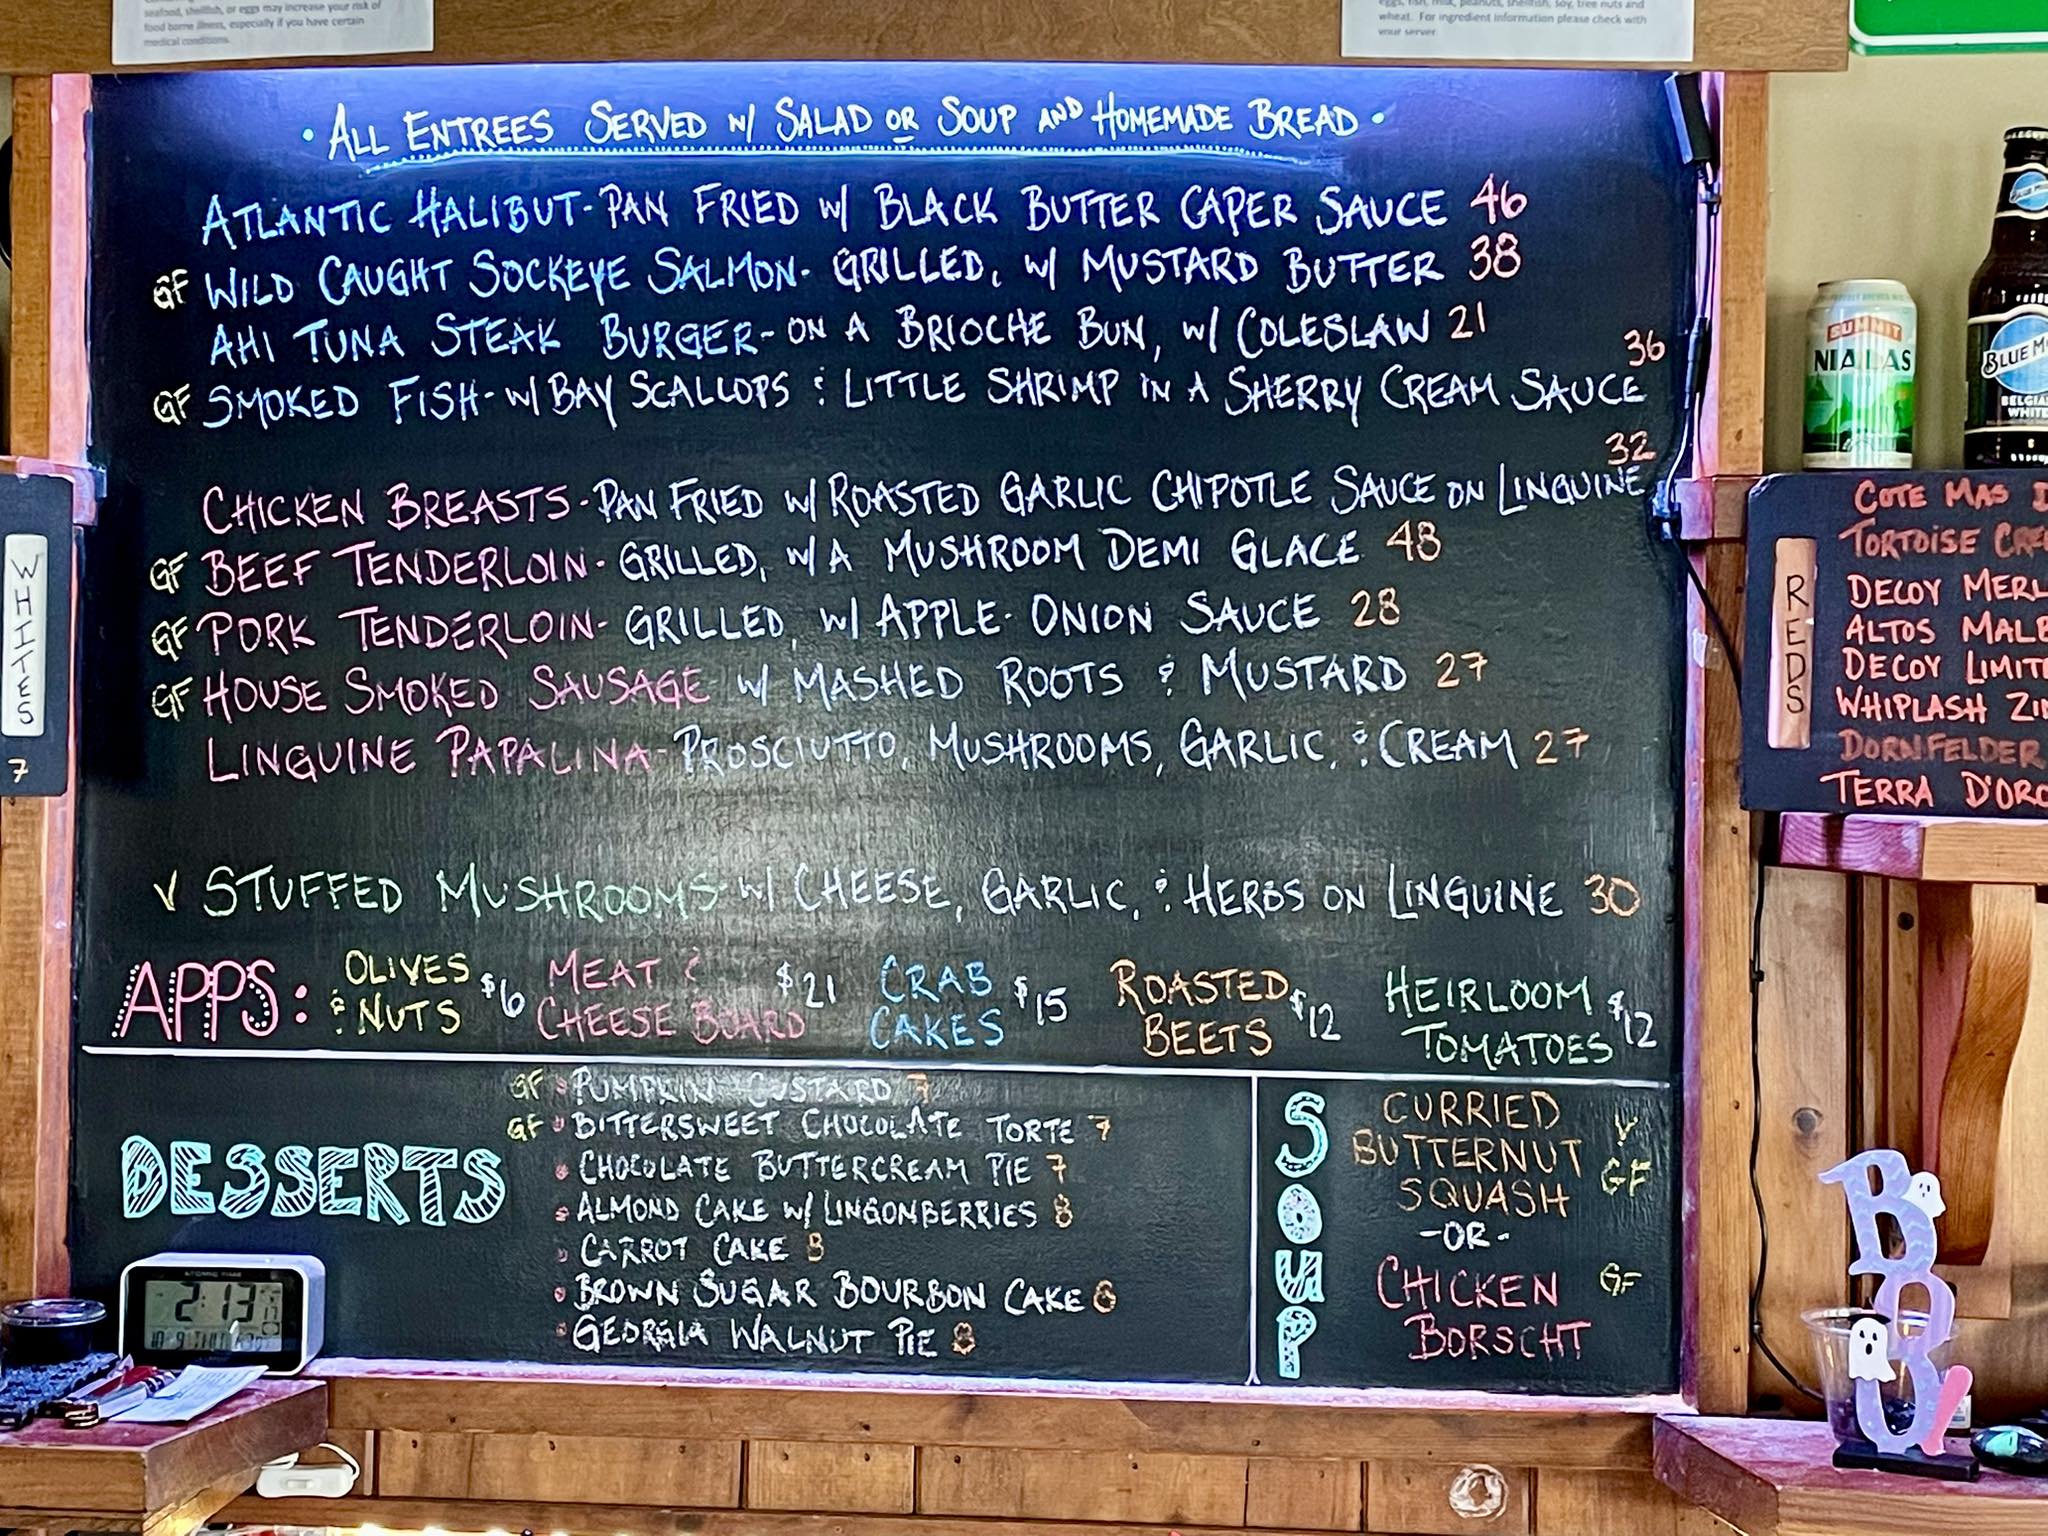 seafood, shellfish, or eggs may increase your risk of
food borne illness, especially if you have certain
medical conditions.
eggs, fish, milk, peanuts, shellfish, soy, tree nuts and
wheat. For ingredient information please check with
your server.
• ALL ENTREES SERVED W/ SALAD OR SOUP AND HOMEMADE BREAD •
ATLANTIC HALIBUT - PAN FRIED W/ BLACK BUTTER CAPER SAUCE 46
GF WILD CAUGHT SOCKEYE SALMON - GRILLED, W/ MUSTARD BUTTER 38
AHI TUNA STEAK BURGER - ON A BRIOCHE BUN, W/ COLESLAW 21
GF SMOKED FISH - W/ BAY SCALLOPS & LITTLE SHRIMP IN A SHERRY CREAM SAUCE 36
CHICKEN BREASTS - PAN FRIED W/ ROASTED GARLIC CHIPOTLE SAUCE ON LINGUINE 32
GF BEEF TENDERLOIN - GRILLED, W/ A MUSHROOM DEMI GLACE 48
GF PORK TENDERLOIN - GRILLED, W/ APPLE-ONION SAUCE 28
GF HOUSE SMOKED SAUSAGE W/ MASHED ROOTS & MUSTARD 27
LINGUINE PAPALINA - PROSCIUTTO, MUSHROOMS, GARLIC, & CREAM 27
V STUFFED MUSHROOMS - W/ CHEESE, GARLIC, & HERBS ON LINGUINE 30
APPS:
OLIVES
& NUTS $6
MEAT &
CHEESE BOARD $21
CRAB
CAKES $15
ROASTED
BEETS $12
HEIRLOOM
TOMATOES $12
DESSERTS
GF • PUMPKIN CUSTARD 7
GF • BITTERSWEET CHOCOLATE TORTE 7
• CHOCOLATE BUTTERCREAM PIE 7
• ALMOND CAKE W/ LINGONBERRIES 8
• CARROT CAKE 8
• BROWN SUGAR BOURBON CAKE 8
• GEORGIA WALNUT PIE 8
SOUP
CURRIED V
BUTTERNUT GF
SQUASH
-OR-
CHICKEN GF
BORSCHT
WHITES
7
REDS
COTE MAS
TORTOISE
DECOY
ALTOS
DECOY
WHIPLASH
DORNFELDER
TERRA
SUMMIT
BLUE
BELGIAN
WHITE
ATOMIC TIME
2:13
BOO